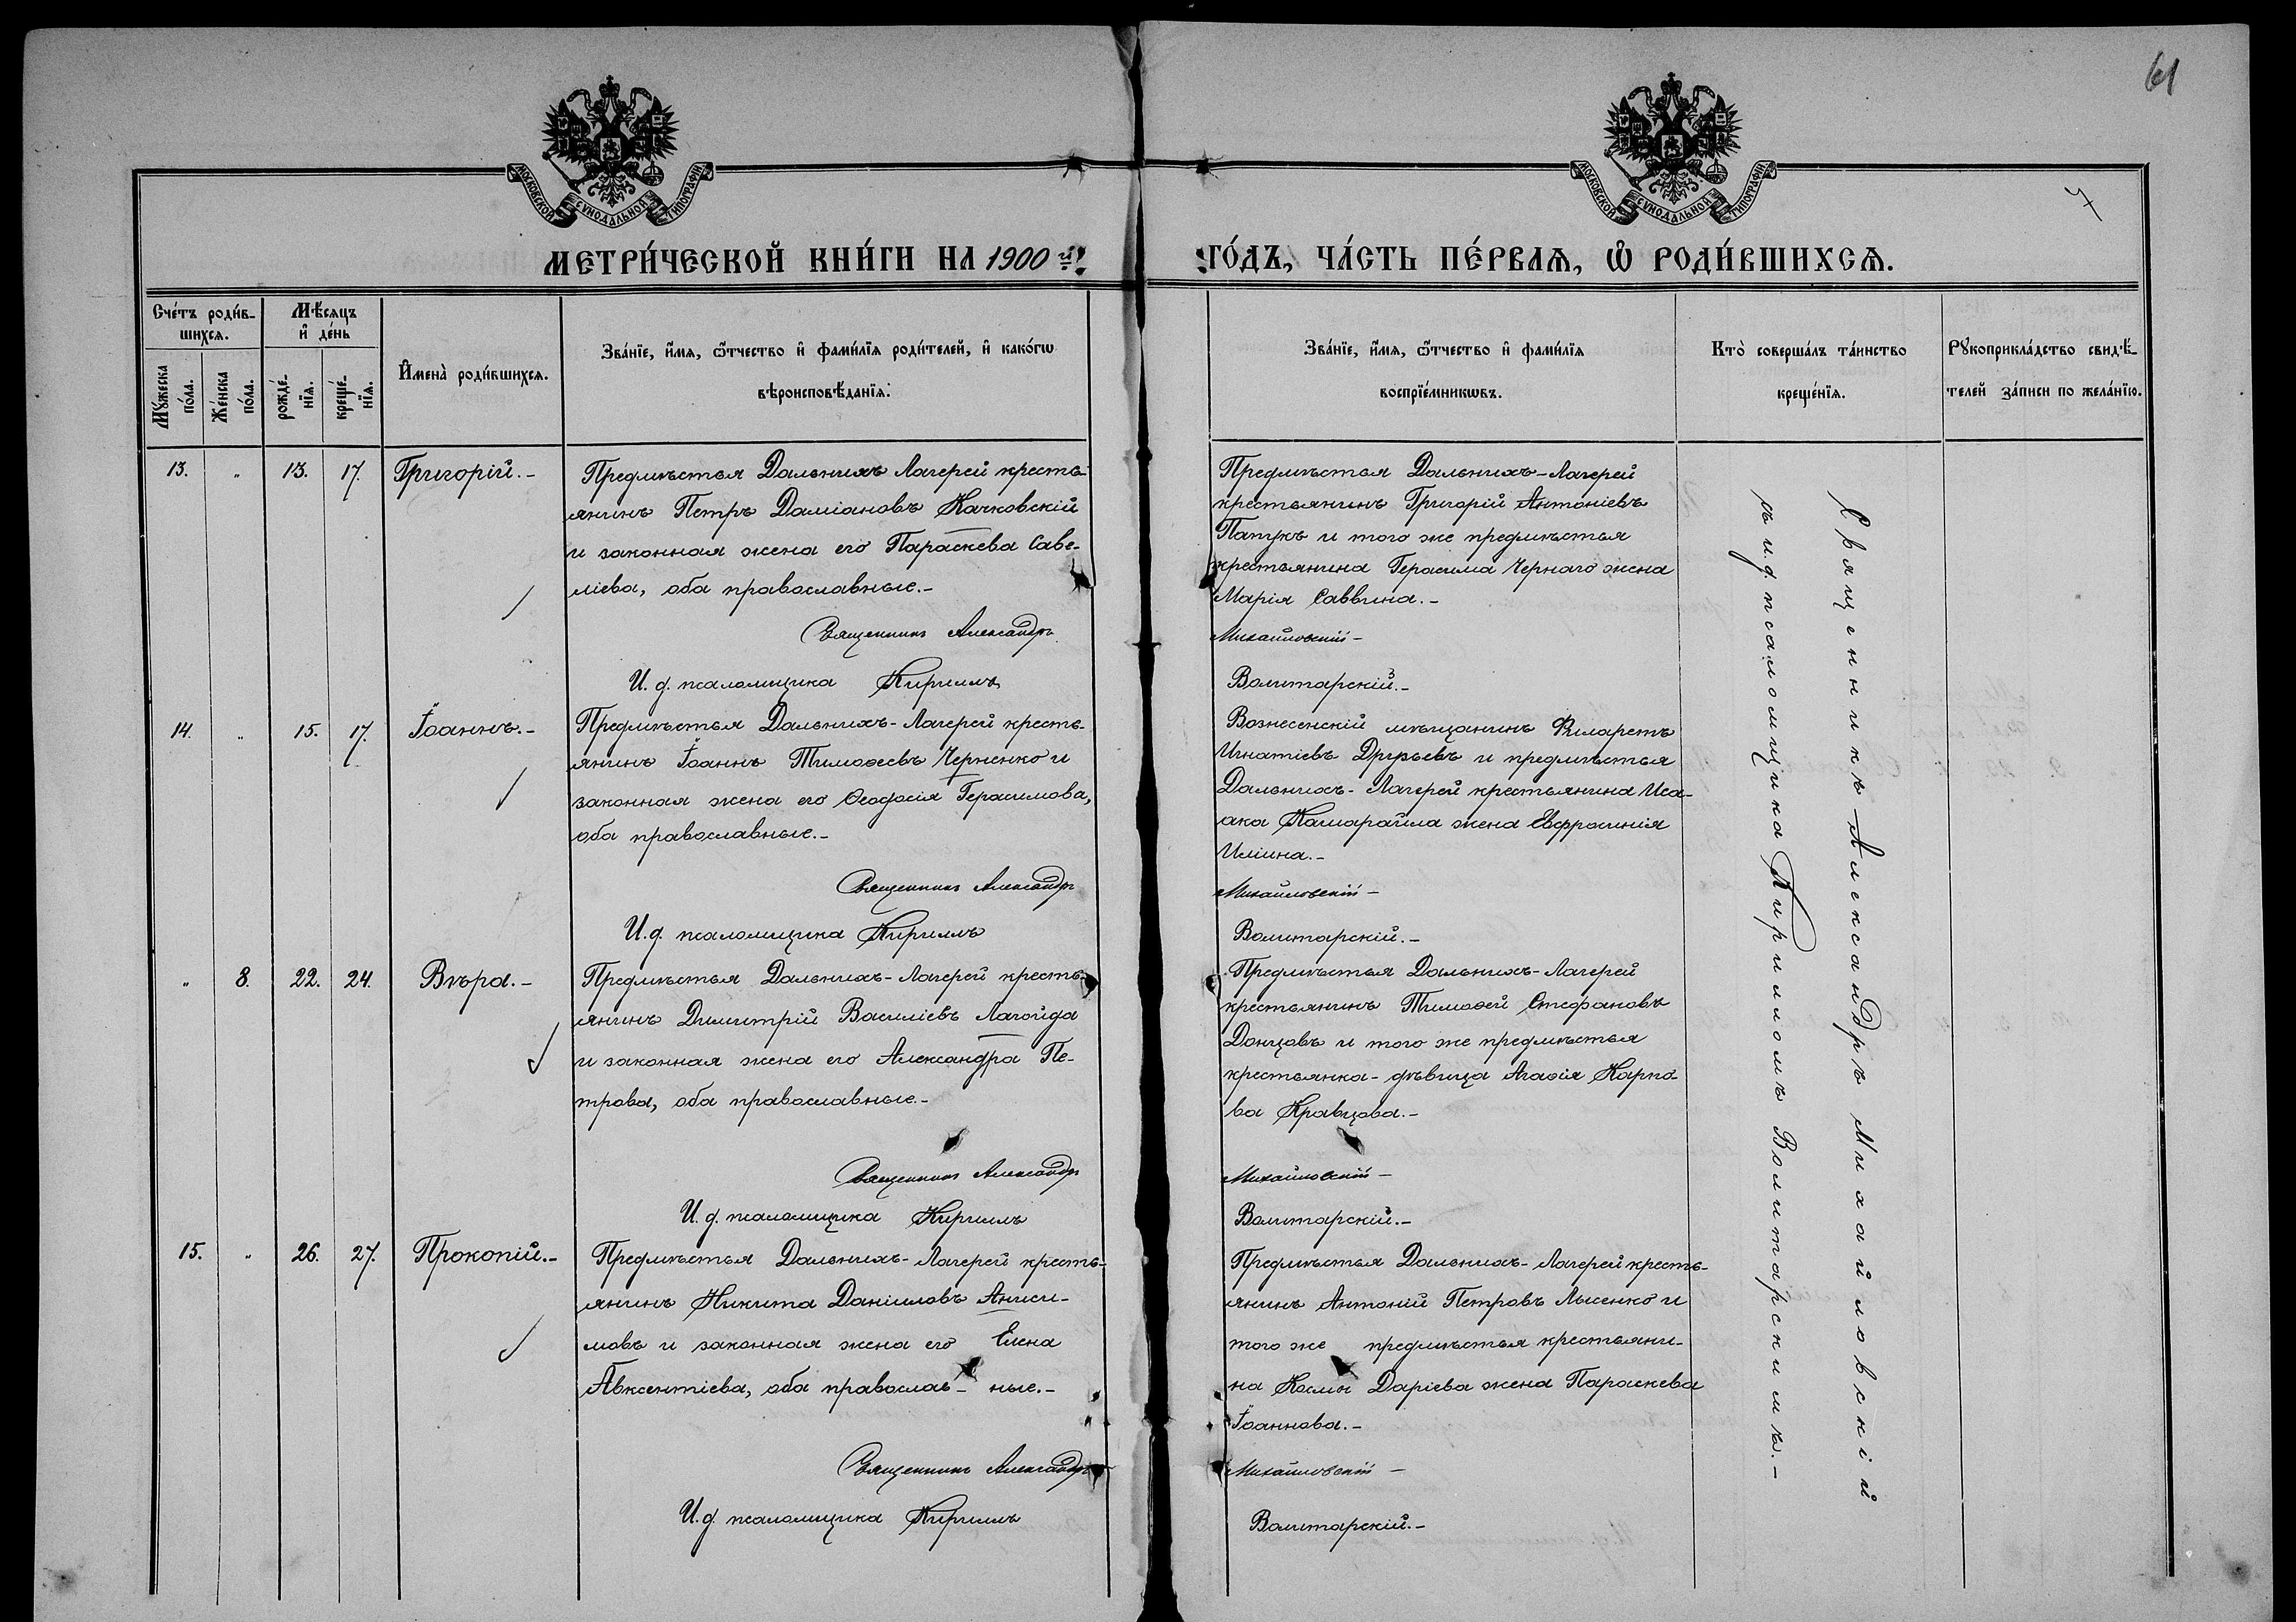 61
7
МОСКОВСКОЙ СѴНОДАЛЬНОЙ ТИПОГРАФІИ
МОСКОВСКОЙ СѴНОДАЛЬНОЙ ТИПОГРАФІИ
МЕТРИ́ЧЕСКОЙ КНИ́ГИ НА 1900 й
ГО́ДЪ, ЧА́СТЬ ПЕ́РВАѦ, Ѽ РОДИ́ВШИХСѦ.
Сче́тъ роди́в-
шихсѧ.
Мѣ́сѧцъ
и҆ де́нь
Мꙋ́жеска по́ла.
Же́нска по́ла.
рожде́-
нїѧ.
креще́-
нїѧ.
И҆мена̀ роди́вшихсѧ.
Зва́нїе, и҆́мѧ, ѻ҆́тчество и҆ фами́лїѧ роди́телей, и҆ како́гѡ
вѣроисповѣ́данїѧ.
Зва́нїе, и҆́мѧ, ѻ҆́тчество и҆ фами́лїѧ
воспрїе́мникѡвъ.
Кто̀ соверша́лъ та́инство
креще́нїѧ.
Рꙋкоприкла́дство свидѣ́-
телей за́писи по жела́нїю.
13. „ 13. 17. Григорій.-
Предмѣстья Дальнихъ Лагерей кресть-
янинъ Петръ Даміановъ Качковскій
и законная жена его Параскева Саве-
ліева, оба православные.-
Священникъ Александръ
И. д. псаломщика Кириллъ
Предмѣстья Дальнихъ-Лагерей
крестьянинъ Григорій Антоніевъ
Папукъ и того же предмѣстья
крестьянина Герасима Чернаго жена
Марія Саввина.-
Михайловскій-
Волитарскій.-
14. „ 15. 17. Іоаннъ.-
Предмѣстья Дальнихъ-Лагерей кресть-
янинъ Іоаннъ Тимоѳеевъ Черненко и
законная жена его Ѳеодосія Герасимова,
оба православные.-
Священникъ Александръ
И. д. псаломщика Кириллъ
Вознесенскій мѣщанинъ Филаретъ
Игнатіевъ Друзьевъ и предмѣстья
Дальнихъ-Лагерей крестьянина Иса-
ака жена Евфросинія
Иліина.-
Михайловскій-
Волитарскій.-
„ 8. 22. 24. Вѣра.-
Предмѣстья Дальнихъ-Лагерей кресть-
янинъ Димитрій Василіевъ Лагойда
и законная жена его Александра Пе-
трова, оба православные.-
Священникъ Александръ
И. д. псаломщика Кириллъ
Предмѣстья Дальнихъ-Лагерей
крестьянинъ Тимоѳей Стефановъ
Донцовъ и того же предмѣстья
крестьянка-дѣвица Агаѳія Карпо-
ва Кравцова.-
Михайловскій-
Волитарскій.-
15. „ 26. 27. Прокопій.-
Предмѣстья Дальнихъ-Лагерей кресть-
янинъ Никита Даніиловъ Аниси-
мовъ и законная жена его Елена
Авксентіева, оба православ- ные.-
Священникъ Александръ
И. д. псаломщика Кириллъ
Предмѣстья Дальнихъ-Лагерей кресть-
янинъ Антоній Петровъ Лысенко и
того же предмѣстья крестьяни-
на Космы Даріева жена Параскева
Іоаннова.-
Михайловскій-
Волитарскій.-
Священникъ Александръ Михайловскій
съ и. д. псаломщика Кирилломъ Волитарскимъ.-